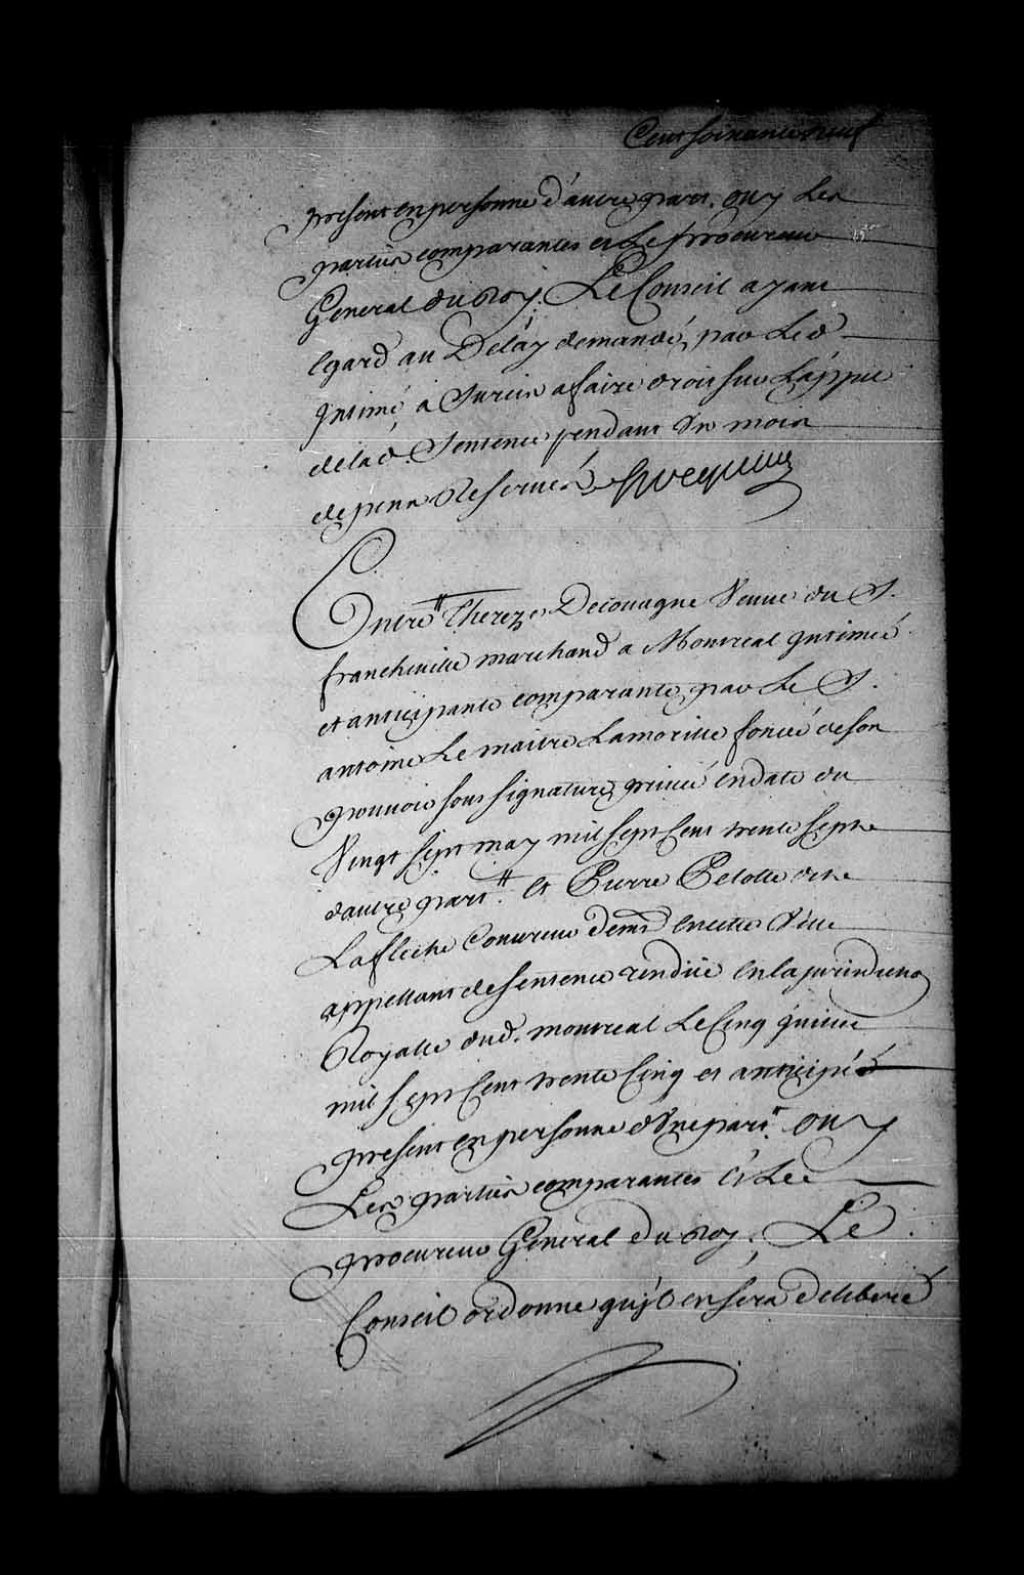 Cent soixante neuf
present en personne d'autre part. ouy Les
parties comparantes et Le procureur
General du Roy. Le Conseil ayant
Egard au Delay demandé, par Led
Intimé a Surcis a faire droit sur L'appel
de lad. Sentence pendant Un mois
depens Reservés. Hocquart
Entre Thereze Decouagne Veuve du S.
francheville marchand a Montreal Intimée
et anticipante comparante, par Le S.
antoine Le maitre Lamorille fondé de son
pouvoir sous signature, privée En date du
Vingt sept may mil sept Cent trente sept
d'autre part. Et Pierre Belotte dit
Lafleche Couvreur demt En cette Ville
appellant de sentence rendüe En la jurisdiction
Royalle dud. montreal Le Cinq
mil sept Cent trente Cinq et anticipé
present en personne d'Une part. ouy
Les parties comparantes Et Le
procureur General du Roy; Le
Conseil ordonne qu'jl en sera Deliberé